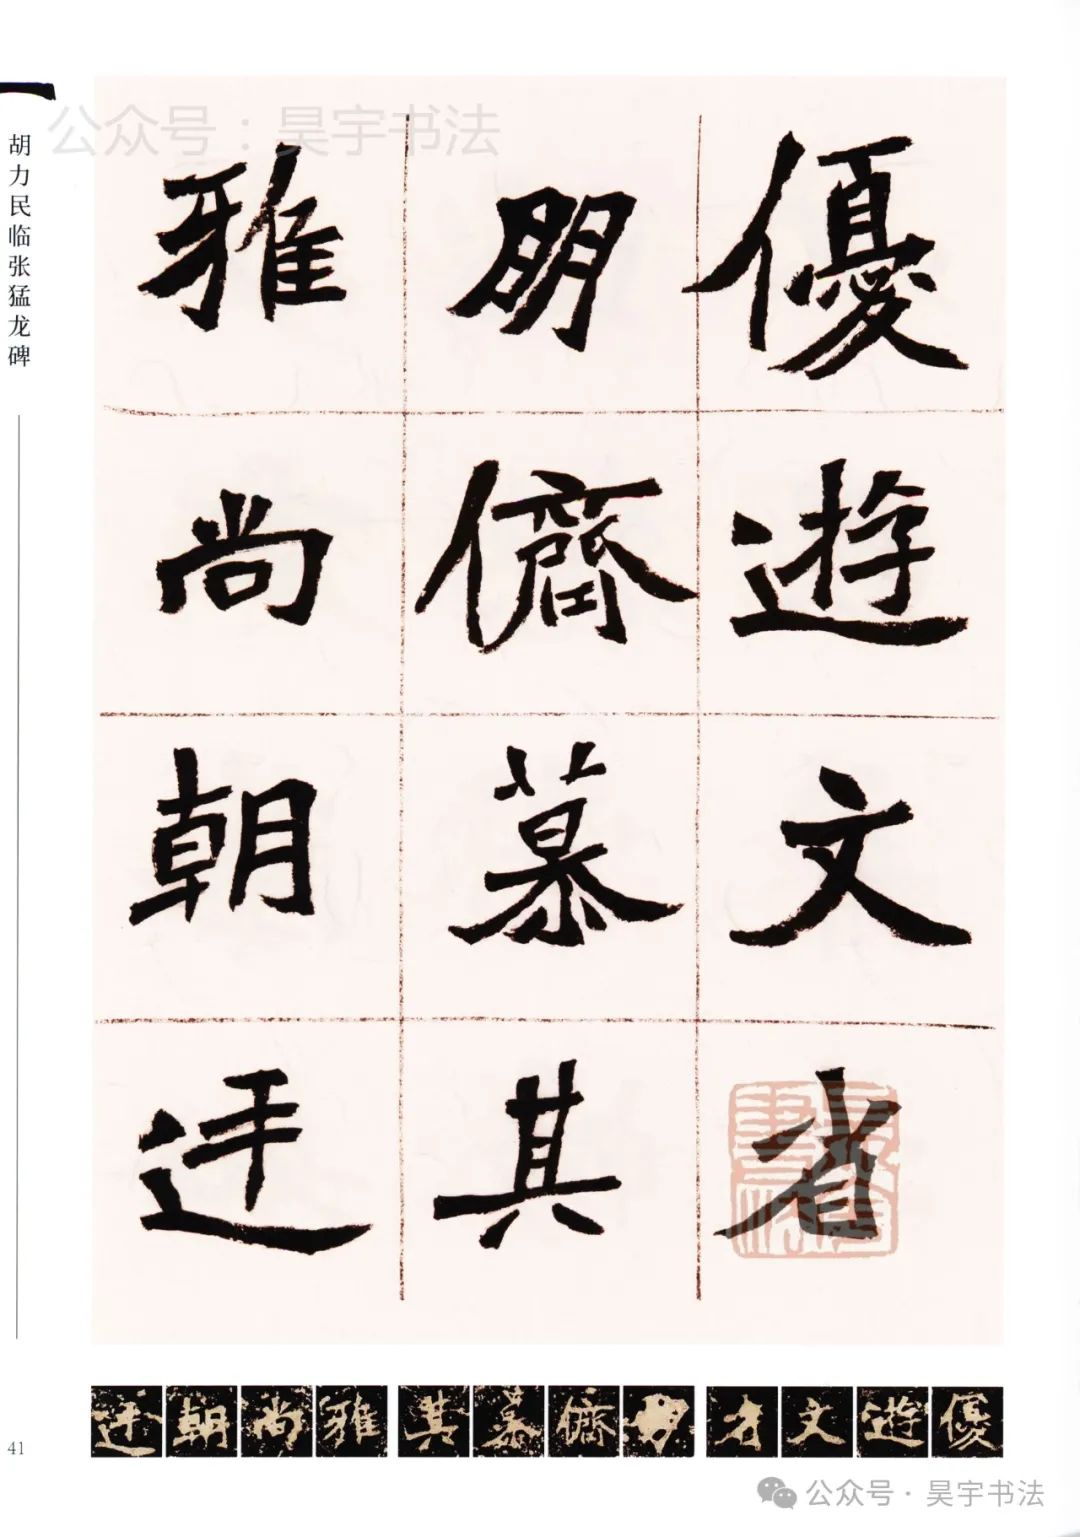 公众号：昊宇书法
胡力民临张猛龙碑
優遊文省
朋儕慕其
雅尚朝廷
優遊文
儕慕其
雅尚朝廷
41
公众号 · 昊宇书法